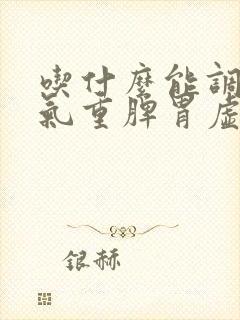 喫什麼能調
氣重脾胃虛
銀赫